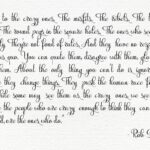 to the crazy ones. The misfits. The rebels. The
The round pegs in the square holes. The ones who see
They're not fond of rules. And they have no
You can quote them, disagree with them, glorify
them. About the only thing you can't do is ignore
they change things. They push the human race
While some may see them as the crazy ones, we see
the people who are crazy enough to think they can
are the ones who do.
Rob